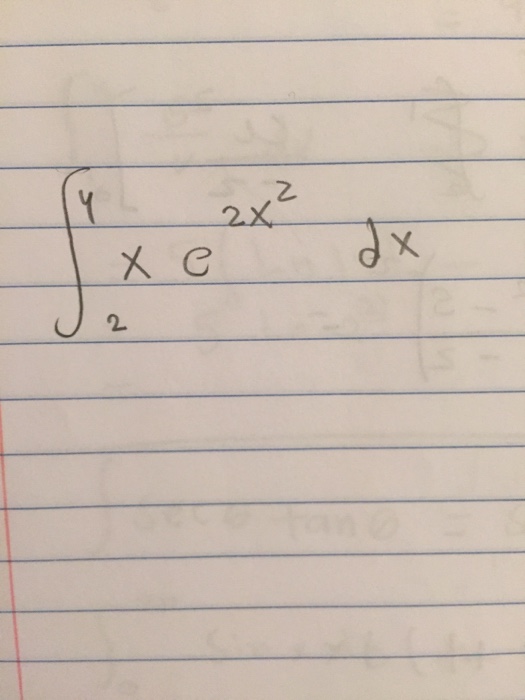 ∫₂⁴ x e^{2x^2} dx